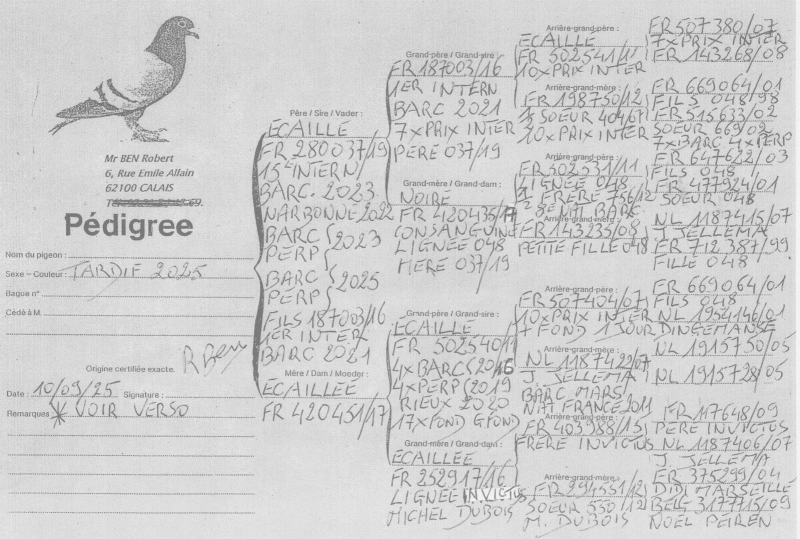 Mr BEN Robert
6, Rue Emile Allain
62100 CALAIS
Pédigree
Nom du pigeon :
Sexe – Couleur : TARDIF 2025
Bague n°
Cédé à M.
Origine certifiée exacte.
Date : 10/09/25 Signature :
Remarques * VOIR VERSO
Père / Sire / Vader :
ECAILLE
FR 280037/19
15e INTERN
BARC. 2023
NARBONNE 2022
BARC } 2023
PERP
BARC } 2025
PERP
FILS 187003/16
1ER INTER
BARC 2021
Mère / Dam / Moeder :
ECAILLEE
FR 420451/17
Grand-père / Grand-sire :
FR 187003/16
1ER INTERN
BARC 2021
7x PRIX INTER
PERE 037/19
Grand-mère / Grand-dam :
NOIRE
FR 420435/17
CONSANGUIN
LIGNEE 048
MERE 037/19
Grand-père / Grand-sire :
ECAILLE
FR 502540/11
4x BARC (2016
4x PERP (2019
RIEUX 2020
17x FOND GFOND
Grand-mère / Grand-dam :
ECAILLEE
FR 252917/16
LIGNEE INVICTUS
MICHEL DUBOIS
Arrière-grand-père :
ECAILLE
FR 502541/11
10x PRIX INTER
Arrière-grand-mère :
FR 198750/12
SOEUR 404/67
10x PRIX INTER
Arrière-grand-père :
FR 502531/11
LIGNEE 048
FRERE 756/12
Arrière-grand-mère :
FR 143235/08
PETITE FILLE 048
Arrière-grand-père :
FR 507404/07
10x PRIX INTER
7 FOND 1 JOUR
Arrière-grand-mère :
NL 1187422/07
J. JELLEMA
BARC MARS
NAT FRANCE 2011
Arrière-grand-père :
FR 403988/13
FRERE INVICTUS
Arrière-grand-mère :
FR 294551/12
SOEUR 550/12
M. DUBOIS
FR 507380/07
7x PRIX INTER
FR 143268/08
FR 669064/01
FILS 048/98
FR 515633/02
SOEUR 669/02
7x BARC 4x PERP
FR 647622/03
FILS 048
FR 477924/01
SOEUR 048
NL 1187415/07
J JELLEMA
FR 712387/99
FILLE 048
FR 669064/01
FILS 048
NL 1954146/01
DINGEMANSE
NL 1915750/05
NL 1915728/05
FR 117648/09
PERE INVICTUS
NL 1187406/07
J. JELLEMA
FR 375299/04
DIDI MARSEILLE
BELG 3177715/09
NOËL PEIREN